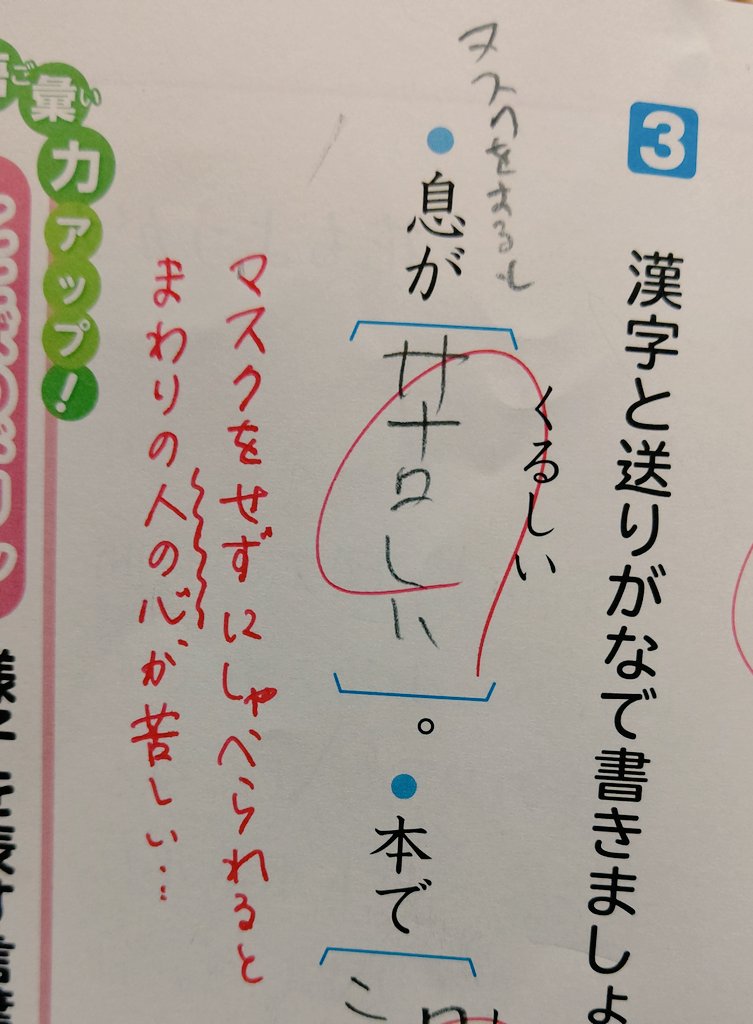 3 漢字と送りがなで書きましょ
くるしい
マスクをするし
息が
苦しい
。
本で
こ
マスクをせずにしゃべられると
まわりの人の心が苦しい…
語彙力アップ!
ごい